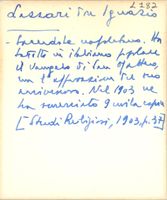 L282
Lassari don Ignazio
- Sacerdote napoletano. Ha
tradotto in italiano popolare
il Vangelo di San Matteo,
con l'approvazione del suo
arcivescovo. Nel 1903 ne
ha 9 mila copie
[Studi Religiosi, 1903, p. 37]